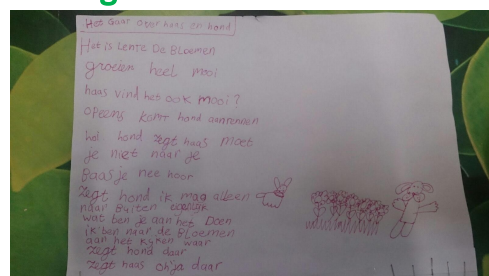 Het gaat over haas en hond
Het is Lente De Bloemen
groeien heel mooi
haas vind het ook mooi?
opeens komt hond aanrennen
hond zegt haas moet
je niet naar je
Baasje nee hoor
zegt hond ik mag alleen
naar Buiten
wat ben je aan het Doen
ik ben naar de Bloemen
aan het kyken waar
zegt hond daar
zegt haas oh ja daar